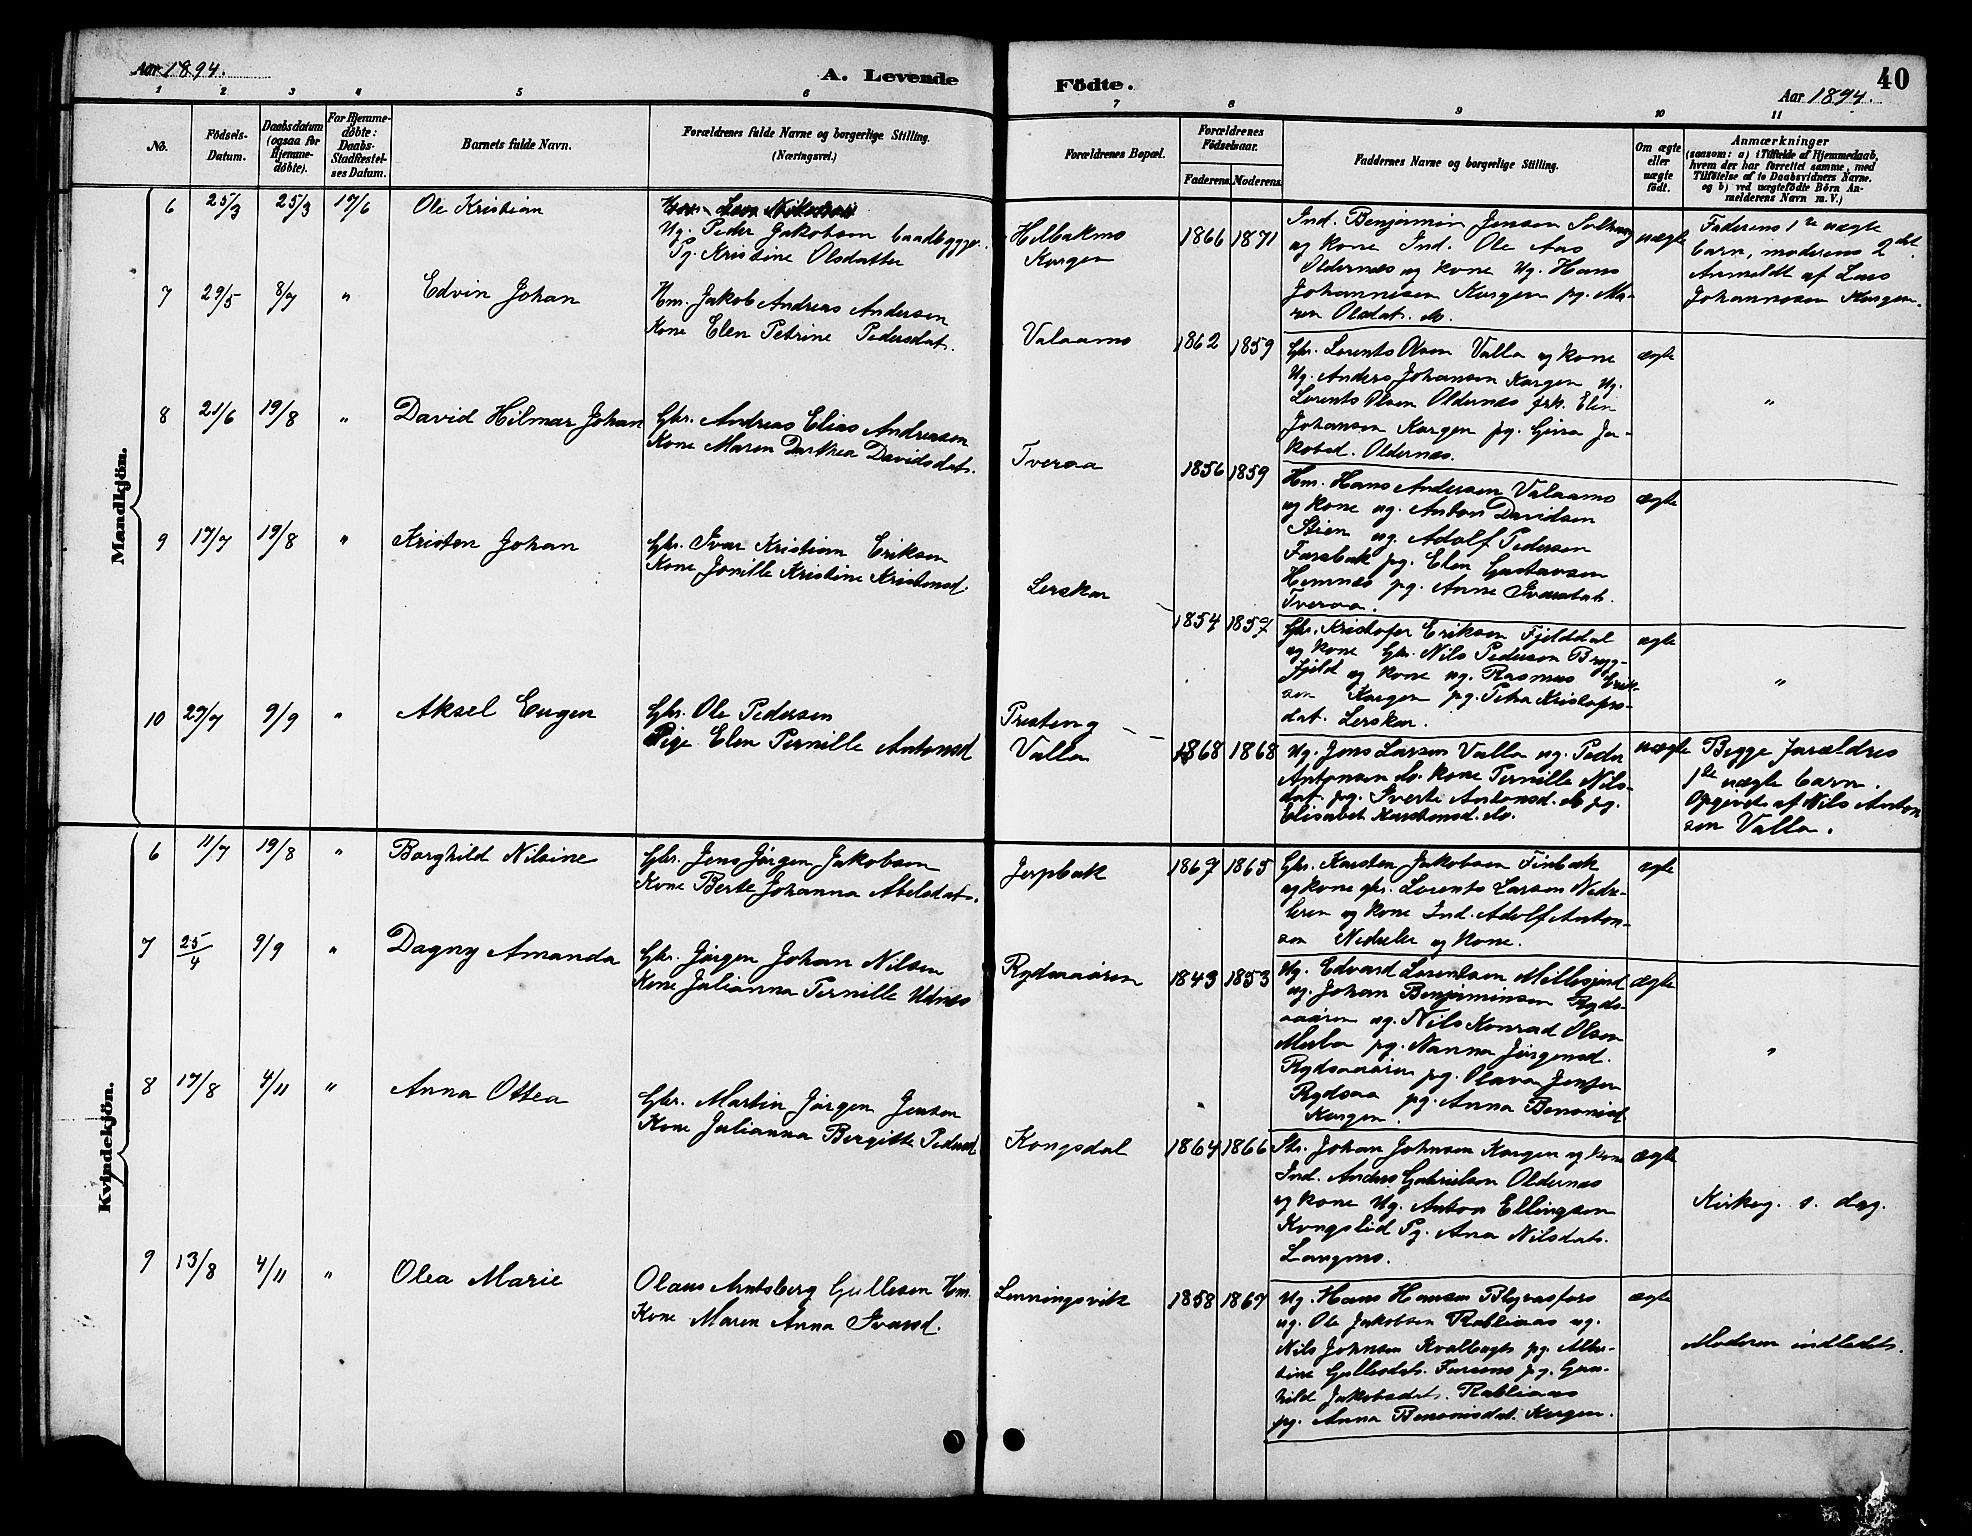 Aar 1894.
A. Levende
Födte.
40
Aar 1894.
1 2 3 4 5 6 7 8 9 10 11
No.
Födsels-
Datum.
Daabsdatum
(ogsaa for
Hjemme-
døbte).
For Hjemme-
døbte:
Daabs-
Stadfæstel-
ses Datum.
Barnets fulde Navn.
Forældrenes fulde Navne og borgerlige Stilling.
(Næringsvei.)
Forældrenes Bopæl.
Forældrenes
Födselsaar.
Faderens. Moderens.
Faddernes Navne og borgerlige Stilling.
Om ægte
eller
uægte
födt.
Anmærkninger
(saasom: a) i Tilfælde af Hjemmedaab,
hvem der har forrettet samme, med
Tilföielse af to Daabsvidners Navne,
og b) ved uægtefödte Börn An-
melderens Navn m. V.)
Mandkjön.
6 25/3 25/3 17/6 Ole Kristian
Ug. Peder Jakobsen baadbygger.
Pg. Kristine Olsdatter
Helbakmo
Korgen
1866 1871
Ind. Benjamin Jensen
og kone Ind. Ole Aas
Oldernæs og kone Ug. Hans
Johannesen Korgen pg. Ma-
ren Olsdat. do.
uægte
Faderens 1ste uægte
barn, moderens 2det.
Anmeldt af Lars
Johannesen Korgen.
7 29/5 8/7 " Edvin Johan
Hm. Jakob Andreas Andersen
Kone Elen Petrine Pedersdat.
Valaamo
1862 1859
Gbr. Lorents Olsen Valla og kone
Ug. Anders Johansen Korgen, ug.
Lorents Olsen Oldernæs frk. Elin
Johansen Korgen pg. Gina Ja-
kobsd. Oldernæs.
ægte
"
8 21/6 19/8 " David Hilmar Johan
Gbr. Andreas Elias Andreasen
Kone Maren Darthea Davidsdat.
Tveraa
1856 1859
Hm. Hans Andersen Valaamo
og kone ug. Anton Davidsen
Stien ug. Adolf Pedersen
Farsbak pg. Elen Gustavsen
Hemnæs pg. Anne Ivarsdat.
Tveraa.
ægte
9 17/7 19/8 " Kristen Johan
Gbr. Ivar Kristian Eriksen
Kone Jonille Kristine Kristensd.
Lerskar
1854 1857
Gbr. Kristofer Eriksen Fjelddal
og kone Gbr. Nils Pedersen Bryg-
fjeld og kone ug. Rasmus Erik-
sen Korgen pg. Petra Kristofers-
dat. Lerskar.
ægte
"
10 29/7 9/9 " Aksel Eugen
Gbr. Ole Pedersen
Pige Elen Pernille Antonsd.
Presteng
Valla
1868 1868
Ug. Jens Larsen Valla ug. Peder
Antonsen do. kone Pernille Nils-
dat. pg. Sverte Antonsd. do pg.
Elisabet Karstensd. do.
uægte
Begge forældres
1ste uægte barn.
Opgivet af Nils Anton
sen Valla.
Kvindekjön.
6 11/7 19/8 " Borghild Nilsine
Gbr. Jens Jørgen Jakobsen
Kone Berte Johanna Abelsdat.
Jerpbak
1867 1865
Gbr. Karsten Jakobsen Finbak
og kone gbr. Lorents Larsen Nedre-
leren og kone Ind. Adolf Anton-
sen Nedreler og kone.
ægte
7 25/4 9/9 " Dagny Amanda
Gbr. Jørgen Johan Nilsen
Kone Julianna Pernille Utnæs
Rydsaaåren
1843 1853
Ug. Edvard Lorentsen
ug. Johan Benjaminsen Ryds-
aaåren ug. Nils Konrad Olsen
pg. Nanna Jørgensd.
Rydsaaåren pg. Olava Jensen
Rydsaa pg. Anna Benonisd.
Korgen.
ægte
"
8 17/8 4/11 " Anna Ottea
Gbr. Martin Jørgen Jensen
Kone Julianna Bergitte Pedersd.
Kongsdal
1864 1866
Str. Johan Johnsen Korgen og kone
Ind. Anders Gabrielsen Oldernæs
og kone Ug. Anton Ellingsen
Kongslid Pg. Ana Nilsdat.
Langmo.
ægte
Kirkeg. s. dag.
9 13/8 4/11 " Olea Marie
Olaus Arntsberg Gullesen Hm.
Kone Maren Anna Ivarsd.
Lenningsvik
1858 1867
Ug. Hans Hansen
ug. Ole Jakobsen Rabliaas ug.
Nils Johnsen pg. Alber-
tine Gullesdat. pg. Gun-
hild Jakobsdat. Rabliaas
pg. Anna Benonisdat. Korgen.
ægte
Moderen indledet.